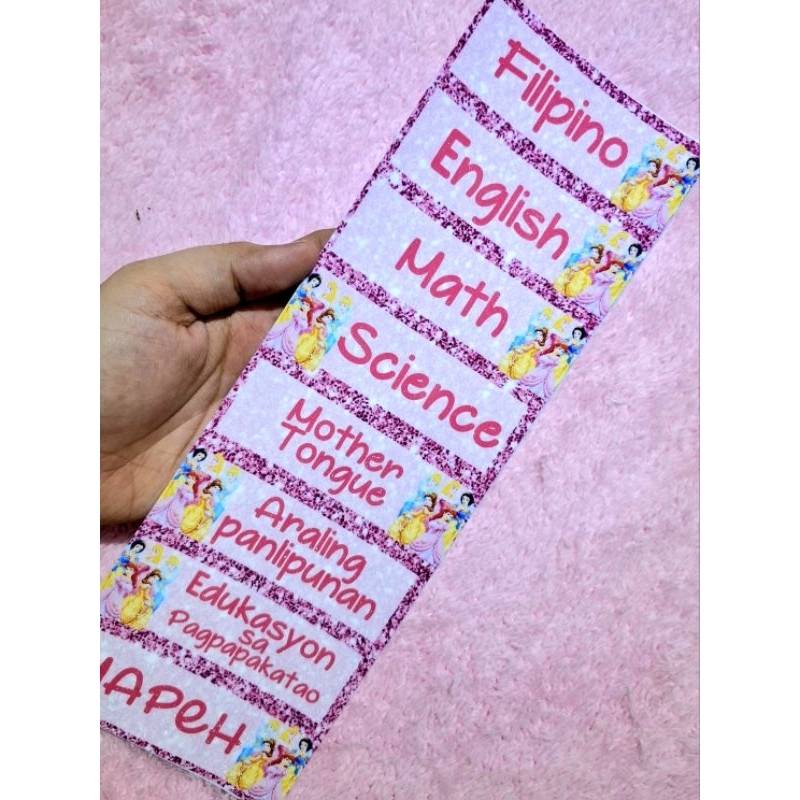 Filipino
English
Math
Science
Mother
Tongue
Araling
panlipunan
Edukasyon
sa
Pagpapakatao
MAPEH